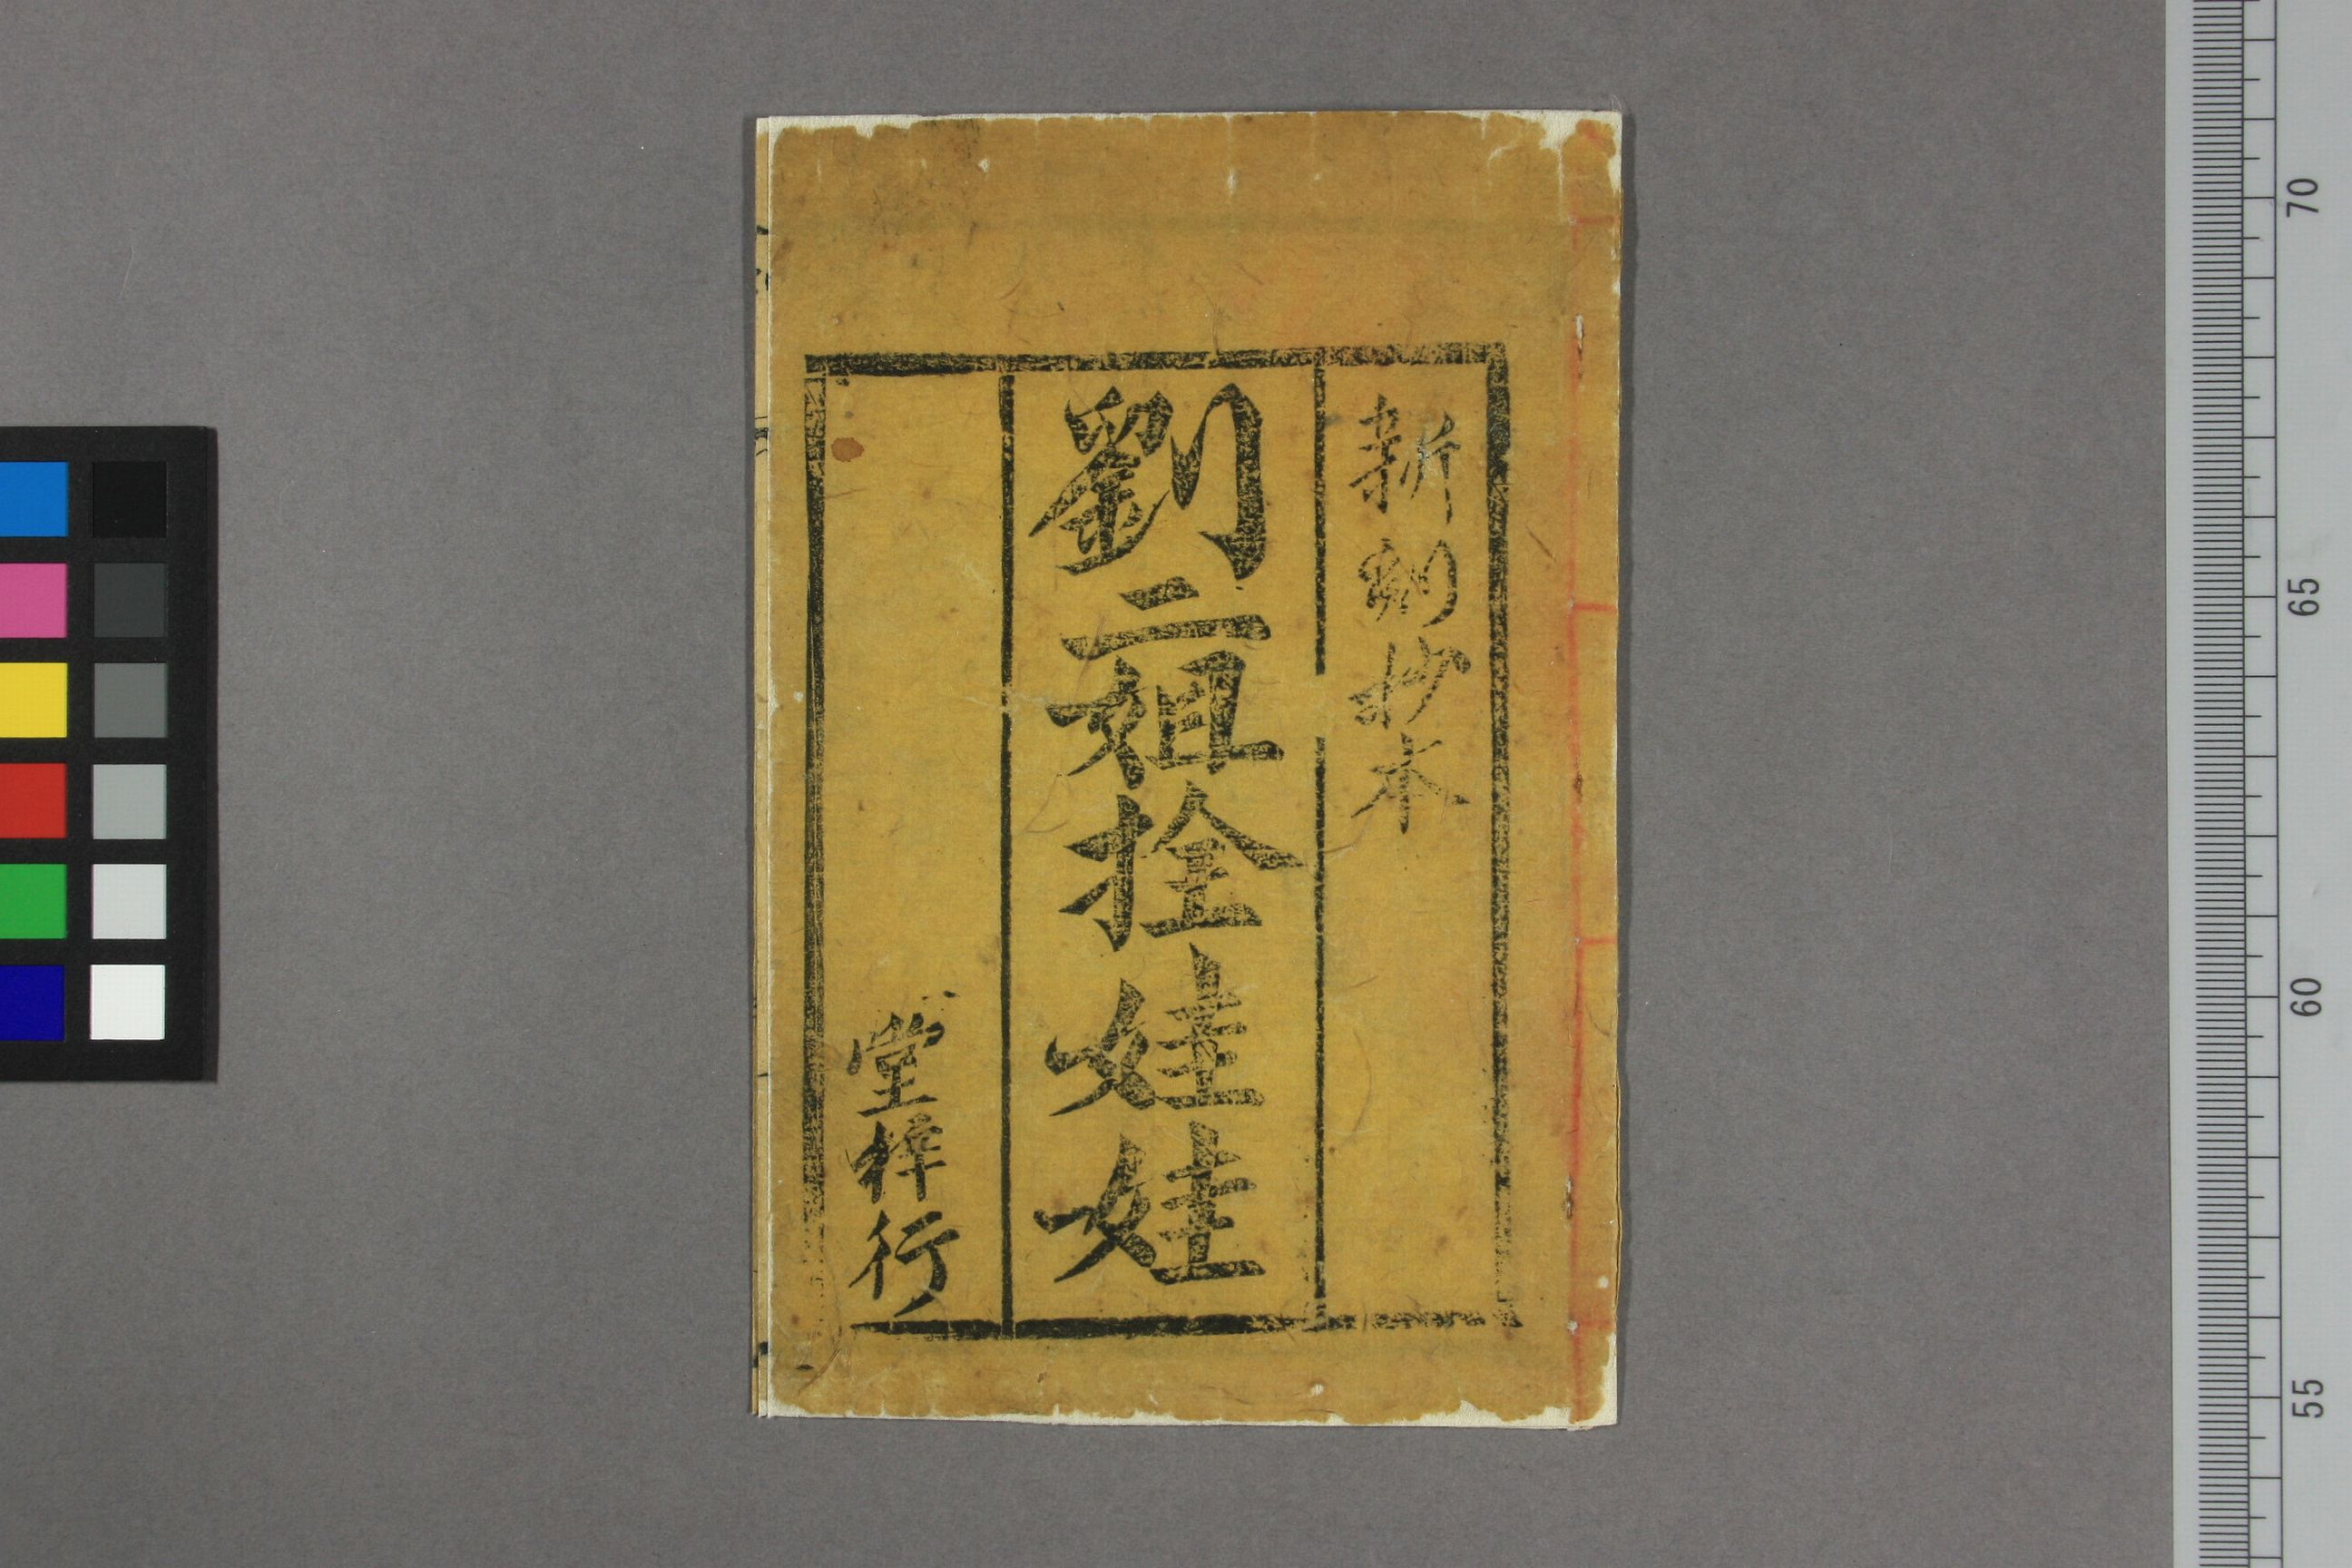 新刻抄本
劉二姐拴娃娃
堂梓行
70
65
60
55